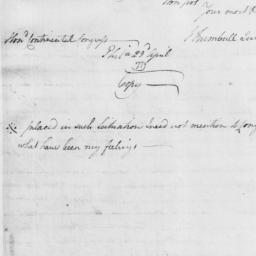 Your most
Trumbull
Honl. Continental Congress
Phila 23d April
Copy
placed in such Situation I need not mention to Cong
what have been my feelings —